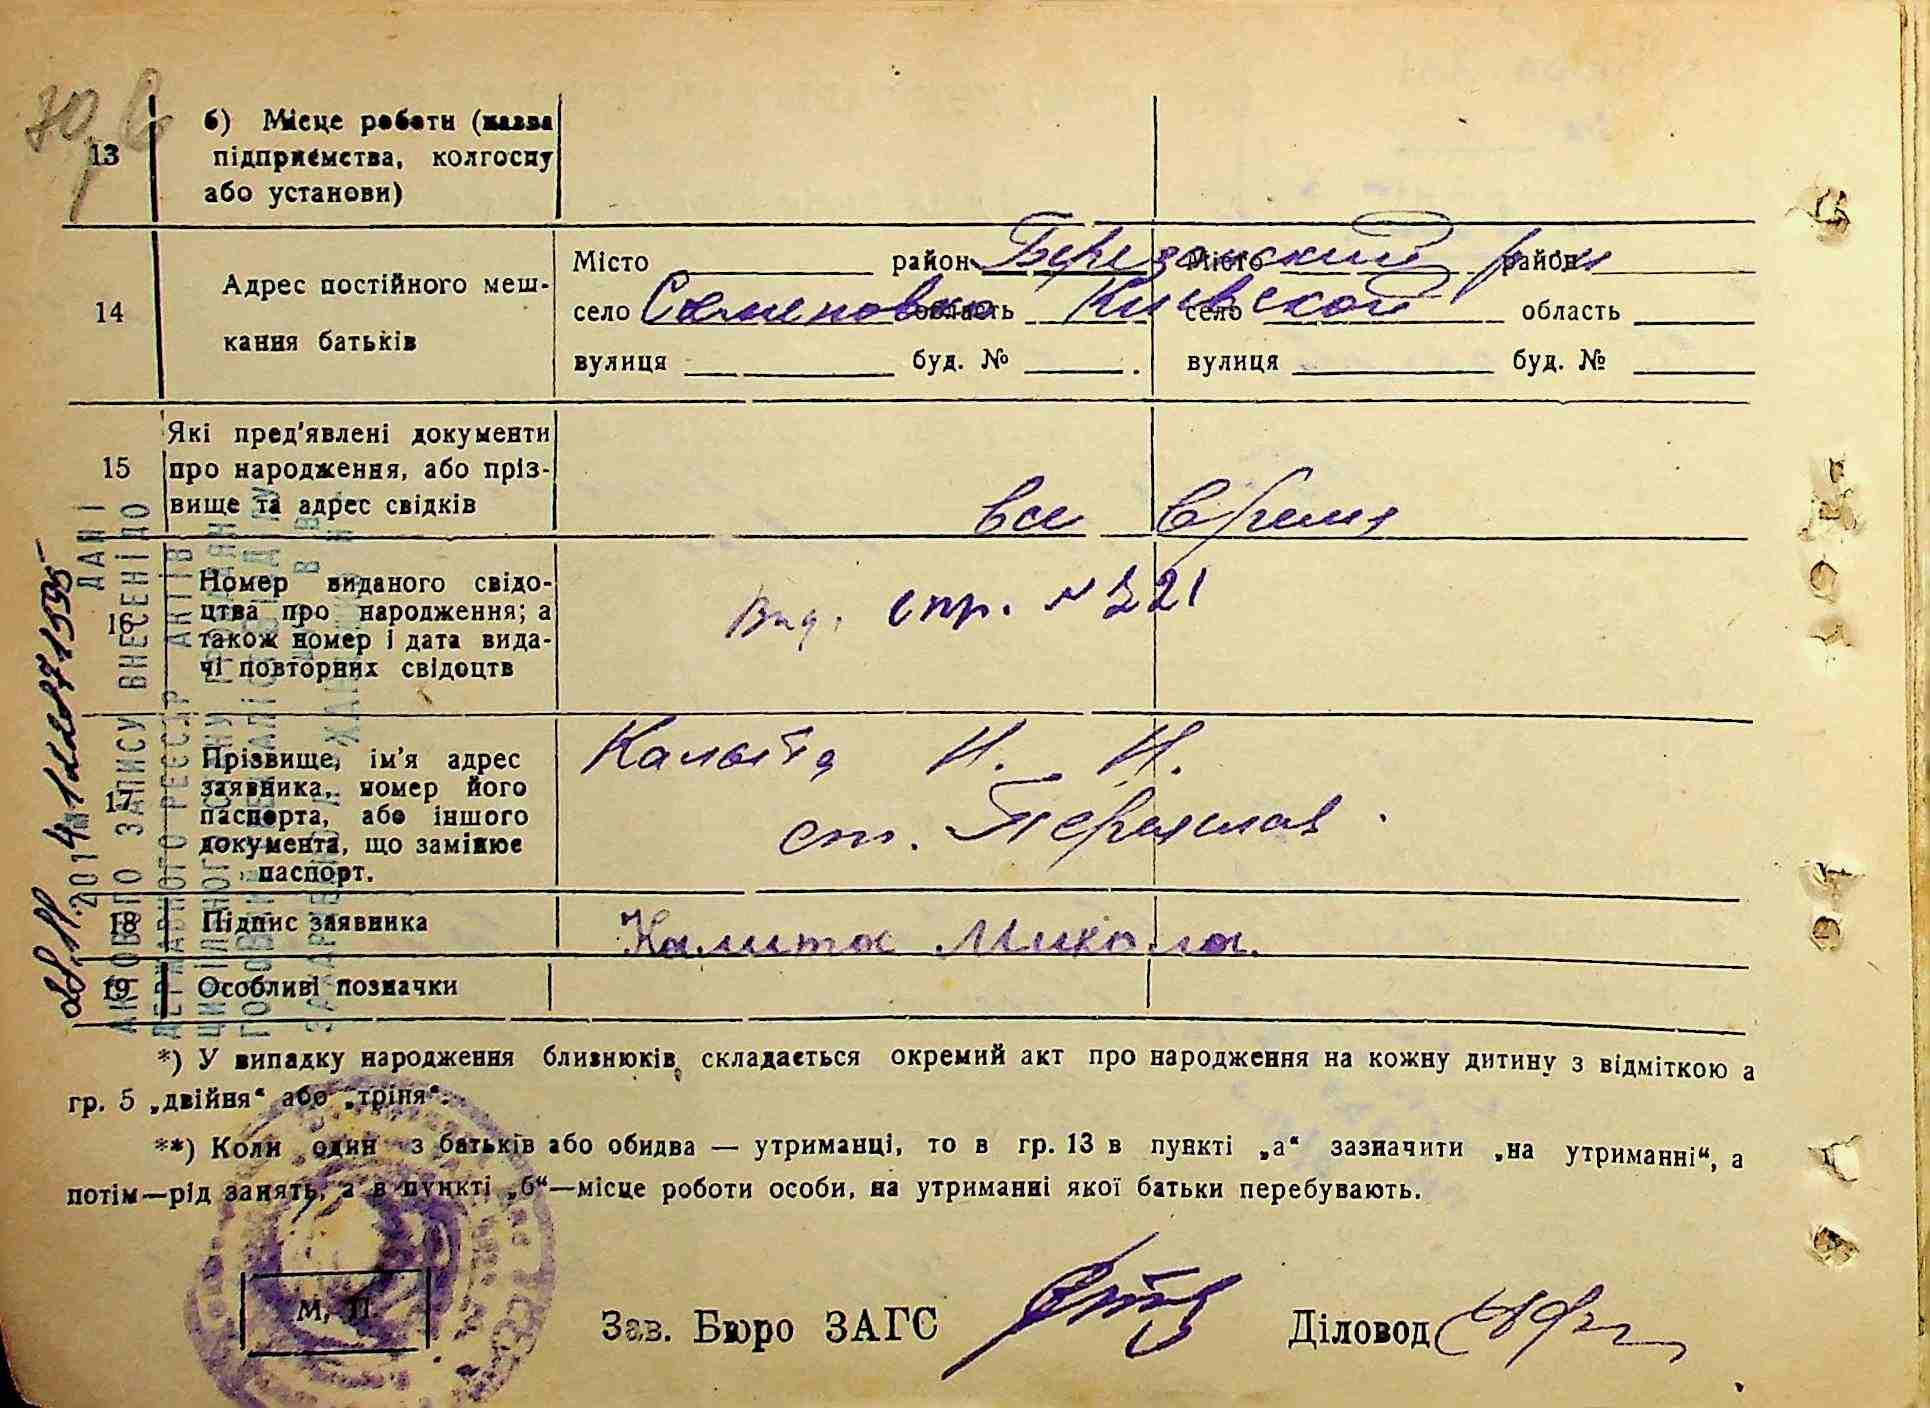 13 б) Місце роботи (назва
підприємства, колгоспу
або установи)
14 Адрес постійного меш-
кання батьків
Місто район Березанский Місто район р-н
село Семеновка область Киевской село область
вулиця буд. № вулиця буд. №
15 Які пред'явлені документи
про народження, або пріз-
вище та адрес свідків
все время
16 Номер виданого свідо-
цтва про народження; а
також номер і дата вида-
чі повторних свідоцтв
Вид. спр. № 221
17 Прізвище, ім'я адрес
заявника, номер його
паспорта, або іншого
документа, що замінює
паспорт.
Калыта Н. Н.
ст. Переяслав.
18 Підпис заявника Калита Микола.
19 Особливі позначки
ДАНІ
АКТОВОГО ЗАПИСУ ВНЕСЕНІ ДО
ДЕРЖАВНОГО РЕЄСТР АКТІВ
*) У випадку народження близнюків складається окремий акт про народження на кожну дитину з відміткою а
гр. 5 „двійня“ або „трійня“.
**) Коли один з батьків або обидва — утриманці, то в гр. 13 в пункті „а“ зазначити „на утриманні“, а
потім—рід занять, а в пункті „б“—місце роботи особи, на утриманні якої батьки перебувають.
М. П.
Зав. Бюро ЗАГС Діловод